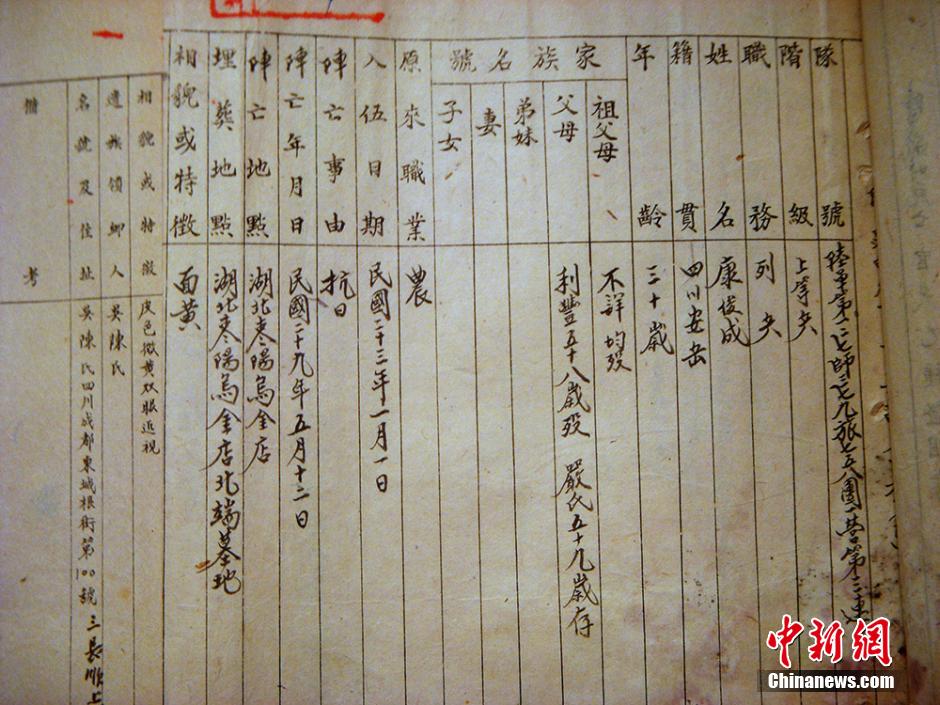 隊號 陸軍第一二七師三七九旅七五八團一營第三連
階級 上等兵
職務 列兵
姓名 康俊成
籍貫 四川安岳
年齡 三十歲
家族名號
祖父母 不詳 均歿
父母 利豐五十八歲歿 嚴氏五十九歲存
弟妹
妻
子女
原來職業 農
入伍日期 民國二十三年一月一日
陣亡事由 抗日
陣亡年月日 民國二十九年五月十二日
陣亡地點 湖北棗陽烏金店
埋葬地點 湖北棗陽烏金店北端墓地
相貌或特徵 面黃
相貌或特徵 皮色微黃双眼近視
遺族領卹人 吳陳氏
名號及住址 吳陳氏四川成都東城根街第100號
三長順上
備考
中新網
Chinanews.com